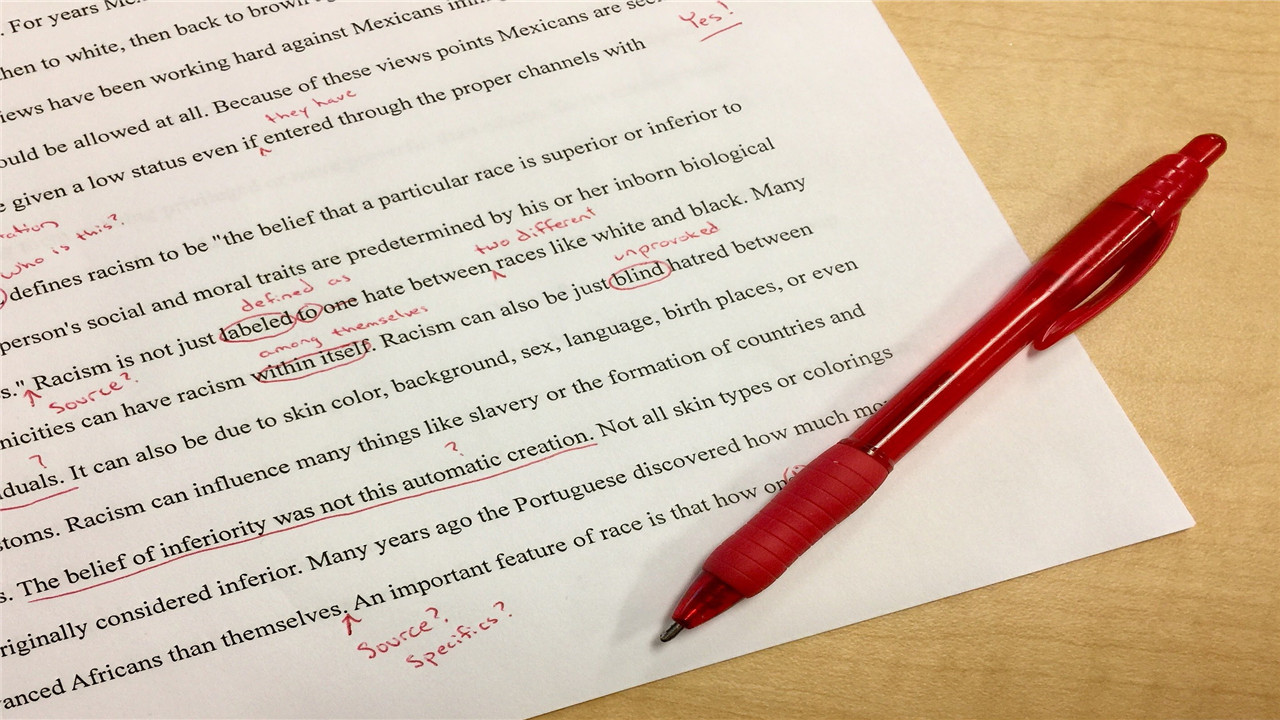 . For years
then to white, then back to brown
iews have been working hard against Mexicans
Yes!
ould be allowed at all. Because of these views points Mexicans are
they have
e given a low status even if ^ entered through the proper channels with
who is this?
defines racism to be "the belief that a particular race is superior or inferior to
two different
person's social and moral traits are predetermined by his or her inborn biological
defined as
unprovoked
s." ^ Racism is not just labeled to one hate between ^ races like white and black. Many
Source?
among themselves
nicities can have racism within itself. Racism can also be just blind hatred between
?
duals. It can also be due to skin color, background, sex, language, birth places, or even
?
stoms. Racism can influence many things like slavery or the formation of countries and
s. The belief of inferiority was not this automatic creation. Not all skin types or colorings
riginally considered inferior. Many years ago the Portuguese discovered how much
vanced Africans than themselves. ^ An important feature of race is that how
Source?
Specifics?